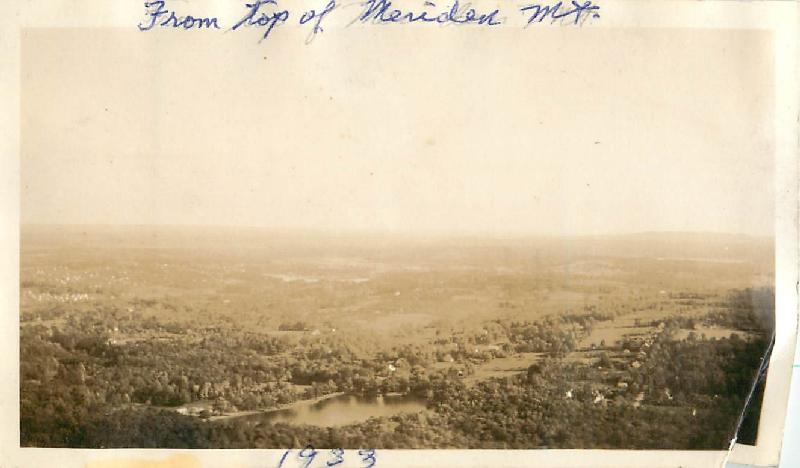 From top of Meriden Mt.
1933